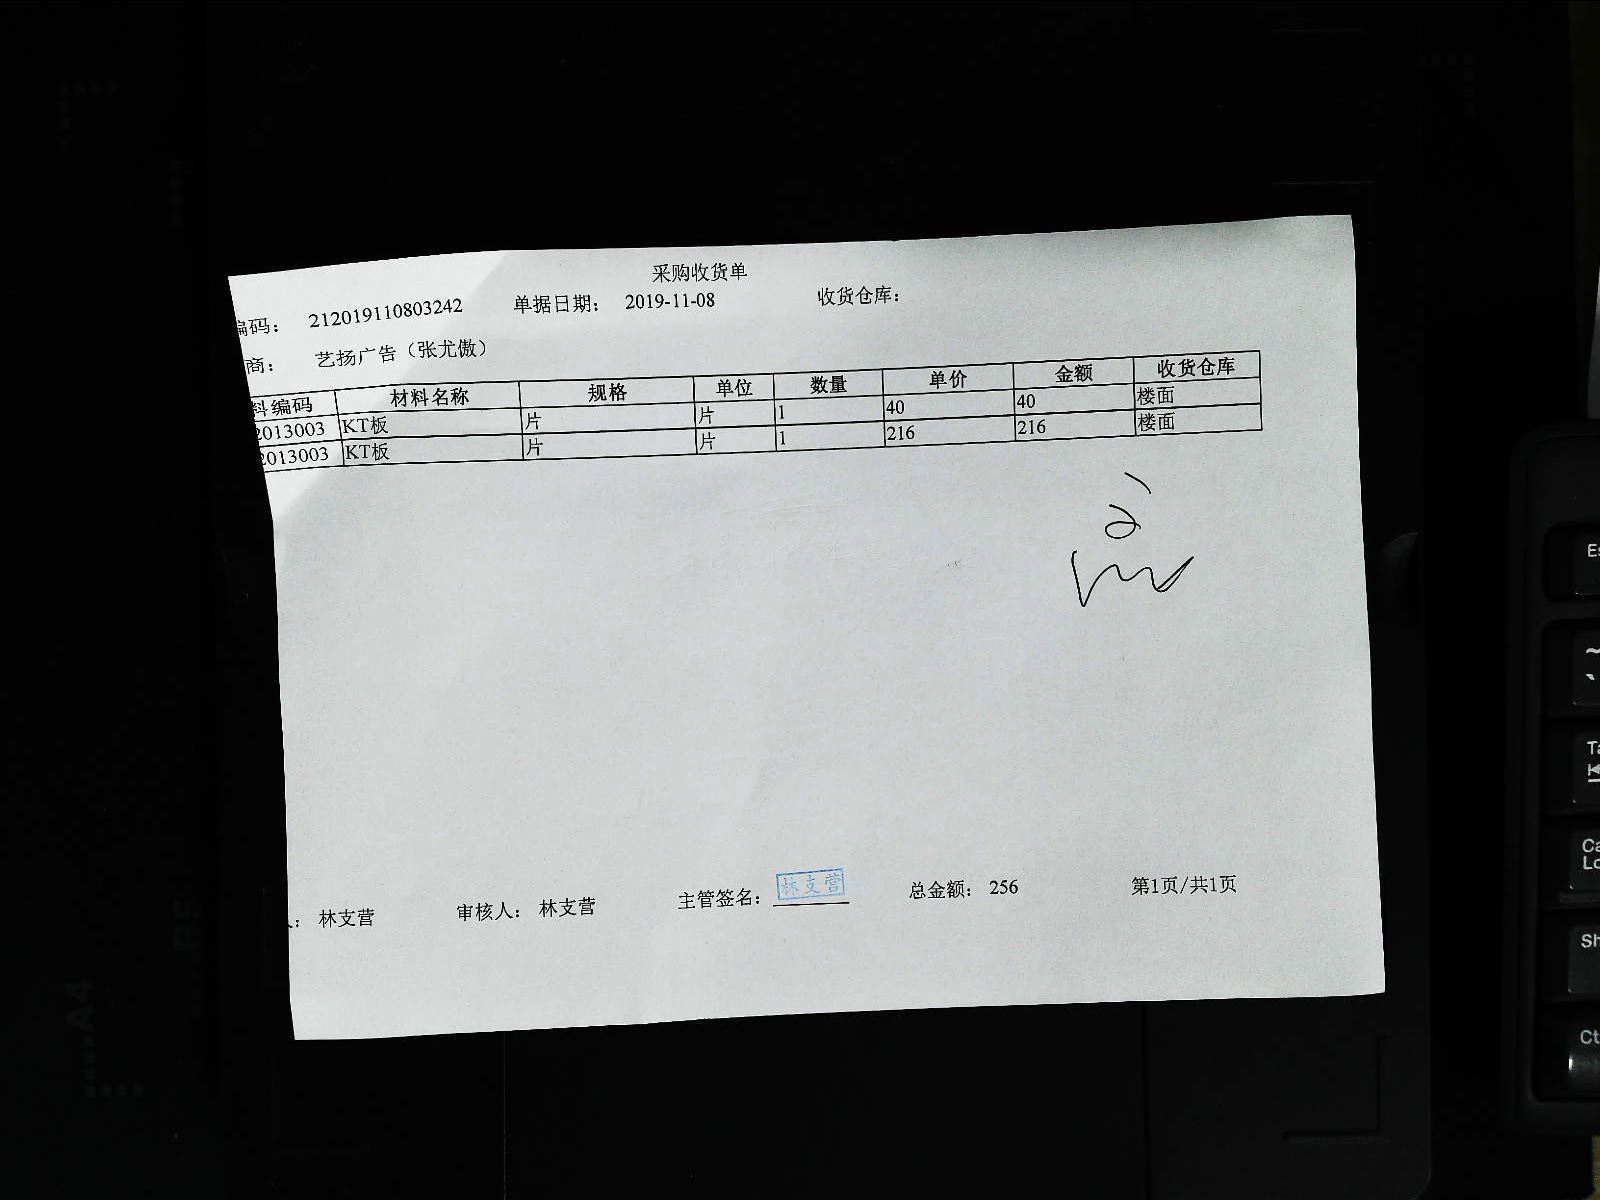 采购收货单
编码： 212019110803242 单据日期： 2019-11-08 收货仓库：
商： 艺扬广告（张尤傲）
料编码 材料名称 规格 单位 数量 单价 金额 收货仓库
2013003 KT板 片 片 1 40 40 楼面
2013003 KT板 片 片 1 216 216 楼面
人： 林支营 审核人： 林支营 主管签名： 林支营 总金额： 256 第1页/共1页
A4
A5
Es
~
`
Ta
Ca
Lo
Sh
Ct